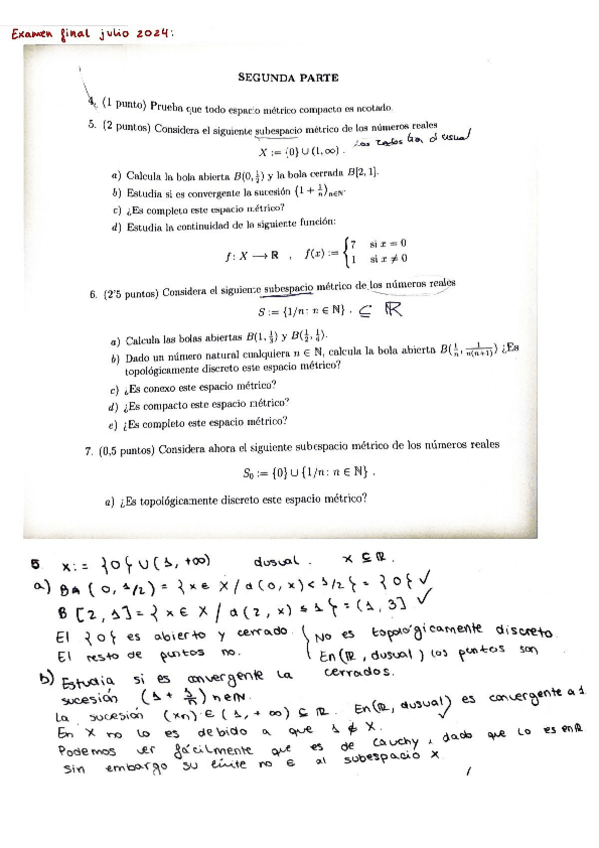 Examen final julio 2024:
SEGUNDA PARTE
4. (1 punto) Prueba que todo espacio métrico compacto es acotado.
5. (2 puntos) Considera el siguiente subespacio métrico de los números reales
X := {0} ∪ (1, ∞) .
d usual
a) Calcula la bola abierta B(0, 1/2) y la bola cerrada B[2, 1].
b) Estudia si es convergente la sucesión (1 + 1/n)n∈N.
c) ¿Es completo este espacio métrico?
d) Estudia la continuidad de la siguiente función:
f : X ⟶ R , f(x) := { 7 si x = 0
1 si x ≠ 0
6. (2'5 puntos) Considera el siguiente subespacio métrico de los números reales
S := {1/n : n ∈ N} . ⊆ ℝ
a) Calcula las bolas abiertas B(1, 1/3) y B(1/2, 1/4).
b) Dado un número natural cualquiera n ∈ N, calcula la bola abierta B(1/n, 1/n(n+1)) ¿Es
topológicamente discreto este espacio métrico?
c) ¿Es conexo este espacio métrico?
d) ¿Es compacto este espacio métrico?
e) ¿Es completo este espacio métrico?
7. (0,5 puntos) Considera ahora el siguiente subespacio métrico de los números reales
S₀ := {0} ∪ {1/n : n ∈ N} .
a) ¿Es topológicamente discreto este espacio métrico?
5 X := {0} ∪ (1, +∞) dusual. X ⊆ ℝ.
a) BA (0, 1/2) = {x ∈ X / d(0, x) < 1/2} = {0} ✓
B [2, 1] = {x ∈ X / d(2, x) ≤ 1} = (1, 3] ✓
El {0} es abierto y cerrado.
El resto de puntos no.
No es topológicamente discreto.
En (ℝ, dusual) los puntos son
cerrados.
b) Estudia si es convergente la
sucesión (1 + 1/n) n∈N.
La sucesión (xn) ∈ (1, +∞) ⊆ ℝ. En (ℝ, dusual) es convergente a 1.
En X no lo es debido a que 1 ∉ X.
Podemos ver fácilmente que es de Cauchy, dado que lo es en ℝ
sin embargo su límite no ∈ al subespacio X.